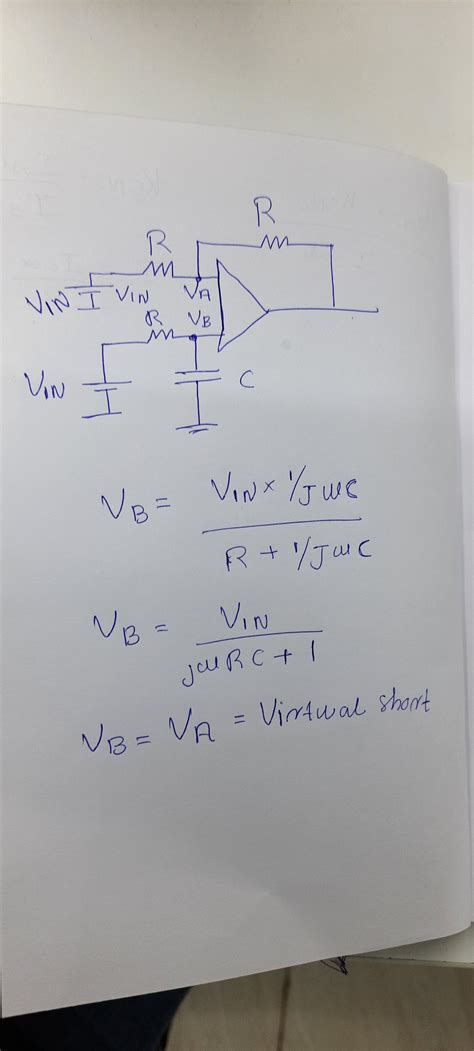 R
R
VIN VIN VA
R VB
VIN C
VB = VIN × 1/JωC
R + 1/JωC
VB = VIN
jωRC + 1
VB = VA = Virtual short